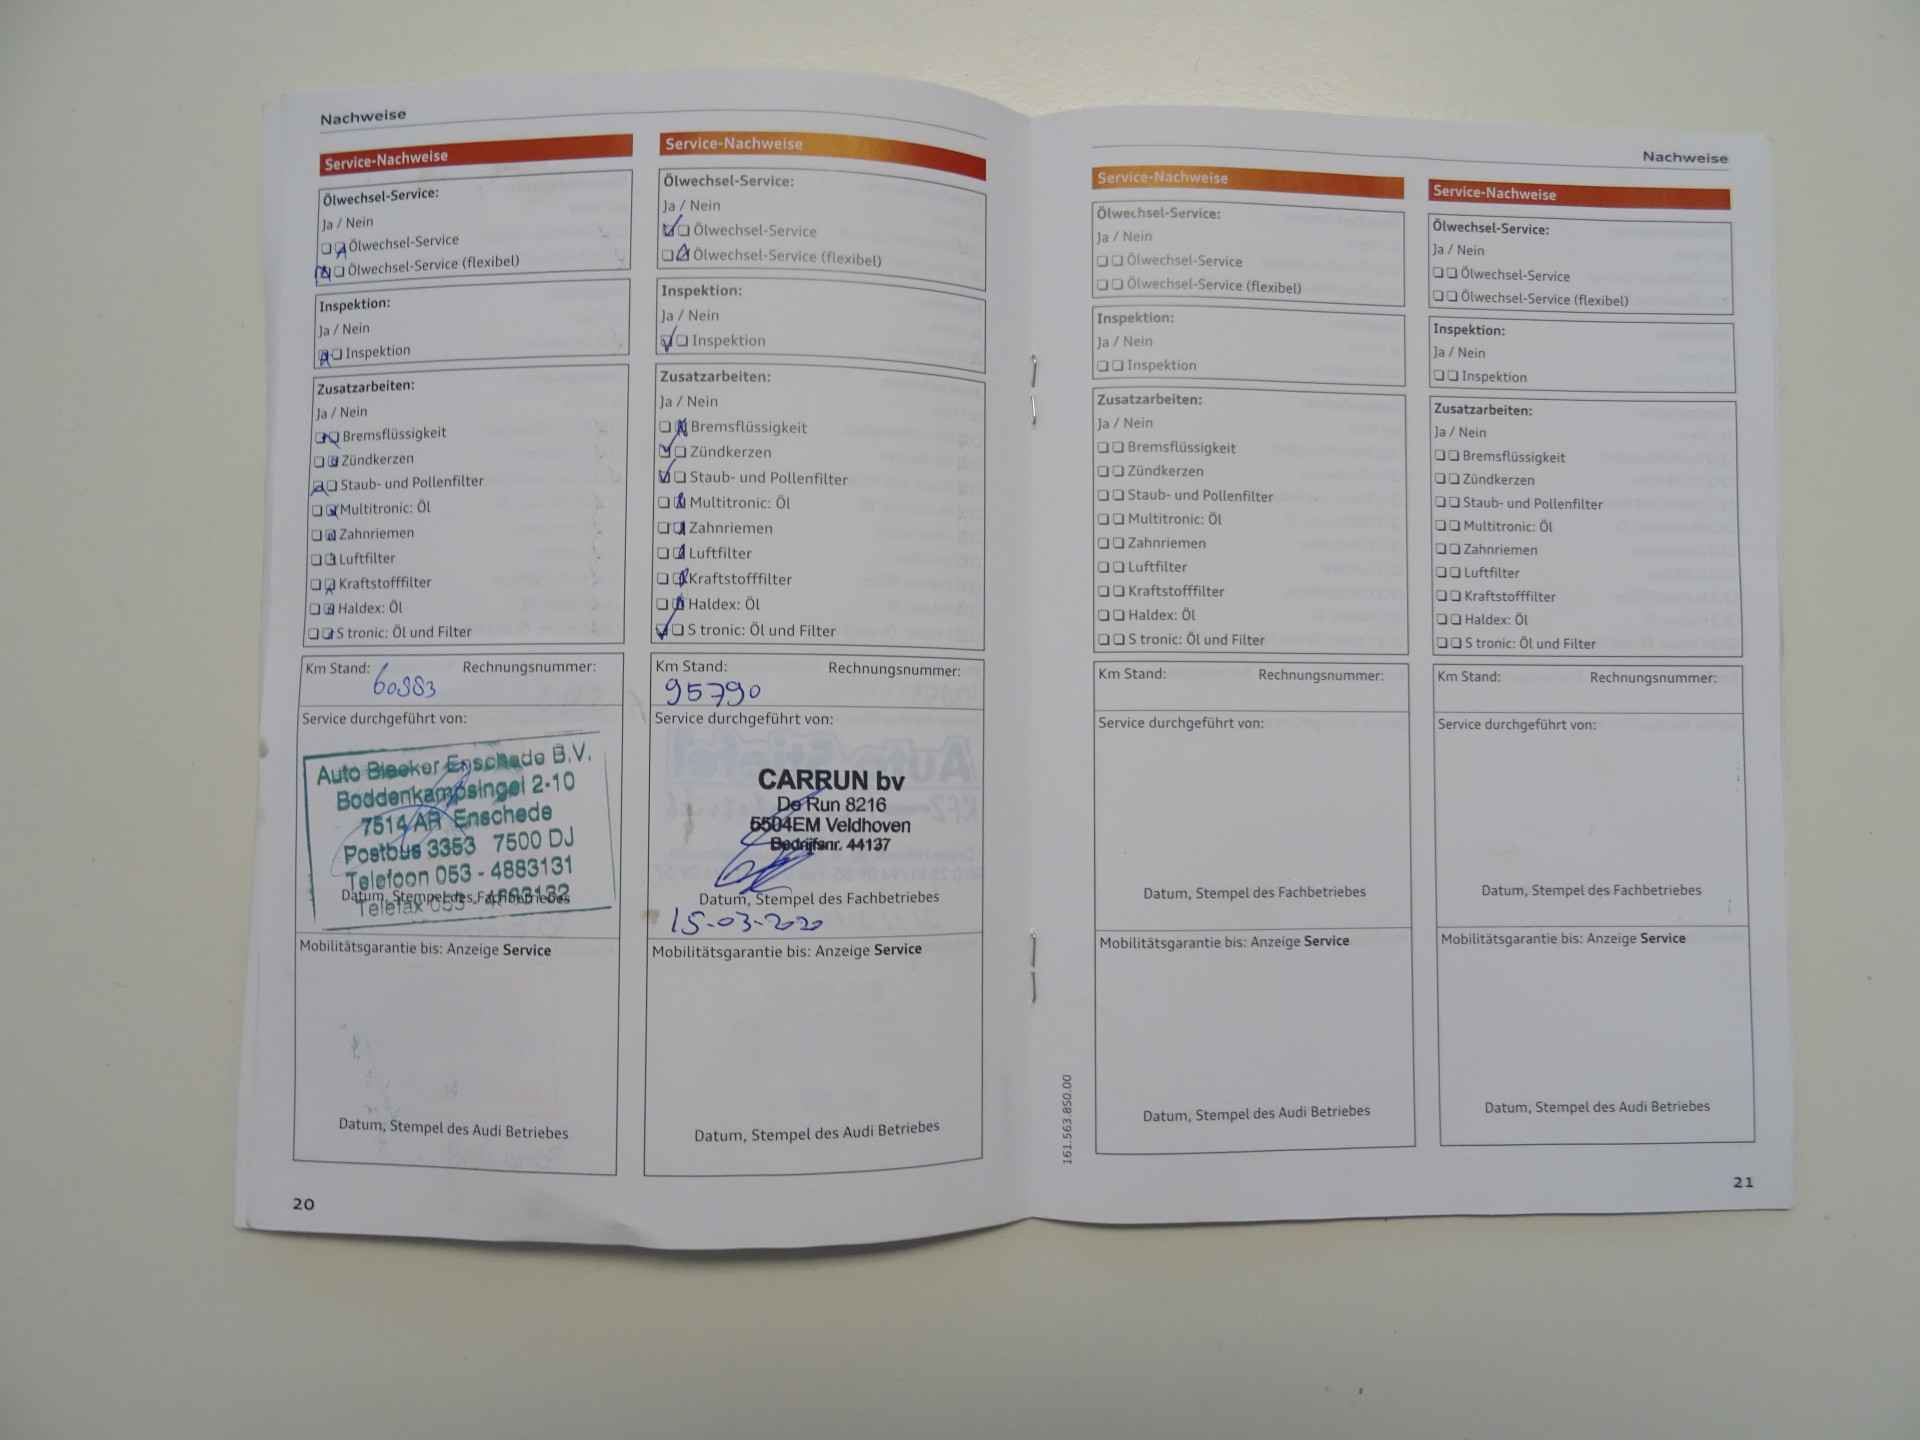 Nachweise
Service-Nachweise
Ölwechsel-Service:
Ja / Nein
Ölwechsel-Service
Ölwechsel-Service (flexibel)
Inspektion:
Ja / Nein
Inspektion
Zusatzarbeiten:
Ja / Nein
Bremsflüssigkeit
Zündkerzen
Staub- und Pollenfilter
Multitronic: Öl
Zahnriemen
Luftfilter
Kraftstofffilter
Haldex: Öl
S tronic: Öl und Filter
Km Stand: Rechnungsnummer:
Service durchgeführt von:
Auto Bleeker Enschede B.V.
Boddenkampsingel 2-10
7514 AR Enschede
Postbus 3353 7500 DJ
Telefoon 053 - 4883131
Datum, Stempel des Fachbetriebes
Telefax 053 - 4883132
Mobilitätsgarantie bis: Anzeige Service
Datum, Stempel des Audi Betriebes
20
Service-Nachweise
Ölwechsel-Service:
Ja / Nein
Ölwechsel-Service
Ölwechsel-Service (flexibel)
Inspektion:
Ja / Nein
Inspektion
Zusatzarbeiten:
Ja / Nein
Bremsflüssigkeit
Zündkerzen
Staub- und Pollenfilter
Multitronic: Öl
Zahnriemen
Luftfilter
Kraftstofffilter
Haldex: Öl
S tronic: Öl und Filter
Km Stand: Rechnungsnummer:
95790
Service durchgeführt von:
CARRUN bv
De Run 8216
5504EM Veldhoven
Bedrijfsnr. 44137
Datum, Stempel des Fachbetriebes
15-03-2020
Mobilitätsgarantie bis: Anzeige Service
Datum, Stempel des Audi Betriebes
Nachweise
Service-Nachweise
Ölwechsel-Service:
Ja / Nein
Ölwechsel-Service
Ölwechsel-Service (flexibel)
Inspektion:
Ja / Nein
Inspektion
Zusatzarbeiten:
Ja / Nein
Bremsflüssigkeit
Zündkerzen
Staub- und Pollenfilter
Multitronic: Öl
Zahnriemen
Luftfilter
Kraftstofffilter
Haldex: Öl
S tronic: Öl und Filter
Km Stand: Rechnungsnummer:
Service durchgeführt von:
Datum, Stempel des Fachbetriebes
Mobilitätsgarantie bis: Anzeige Service
Datum, Stempel des Audi Betriebes
161.563.850.00
Service-Nachweise
Ölwechsel-Service:
Ja / Nein
Ölwechsel-Service
Ölwechsel-Service (flexibel)
Inspektion:
Ja / Nein
Inspektion
Zusatzarbeiten:
Ja / Nein
Bremsflüssigkeit
Zündkerzen
Staub- und Pollenfilter
Multitronic: Öl
Zahnriemen
Luftfilter
Kraftstofffilter
Haldex: Öl
S tronic: Öl und Filter
Km Stand: Rechnungsnummer:
Service durchgeführt von:
Datum, Stempel des Fachbetriebes
Mobilitätsgarantie bis: Anzeige Service
Datum, Stempel des Audi Betriebes
21